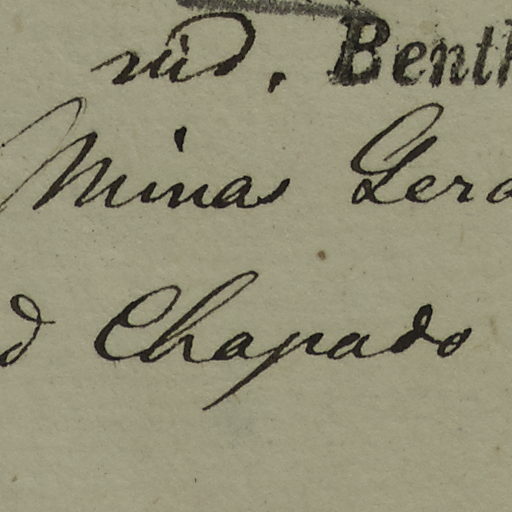 vid. Benth
Minas Gera
d Chapado